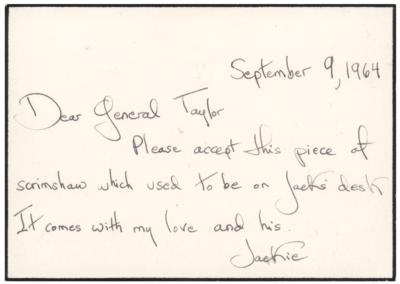 September 9, 1964
Dear General Taylor
Please accept this piece of
scrimshaw which used to be on Jacks' desk
It comes with my love and his.
Jackie